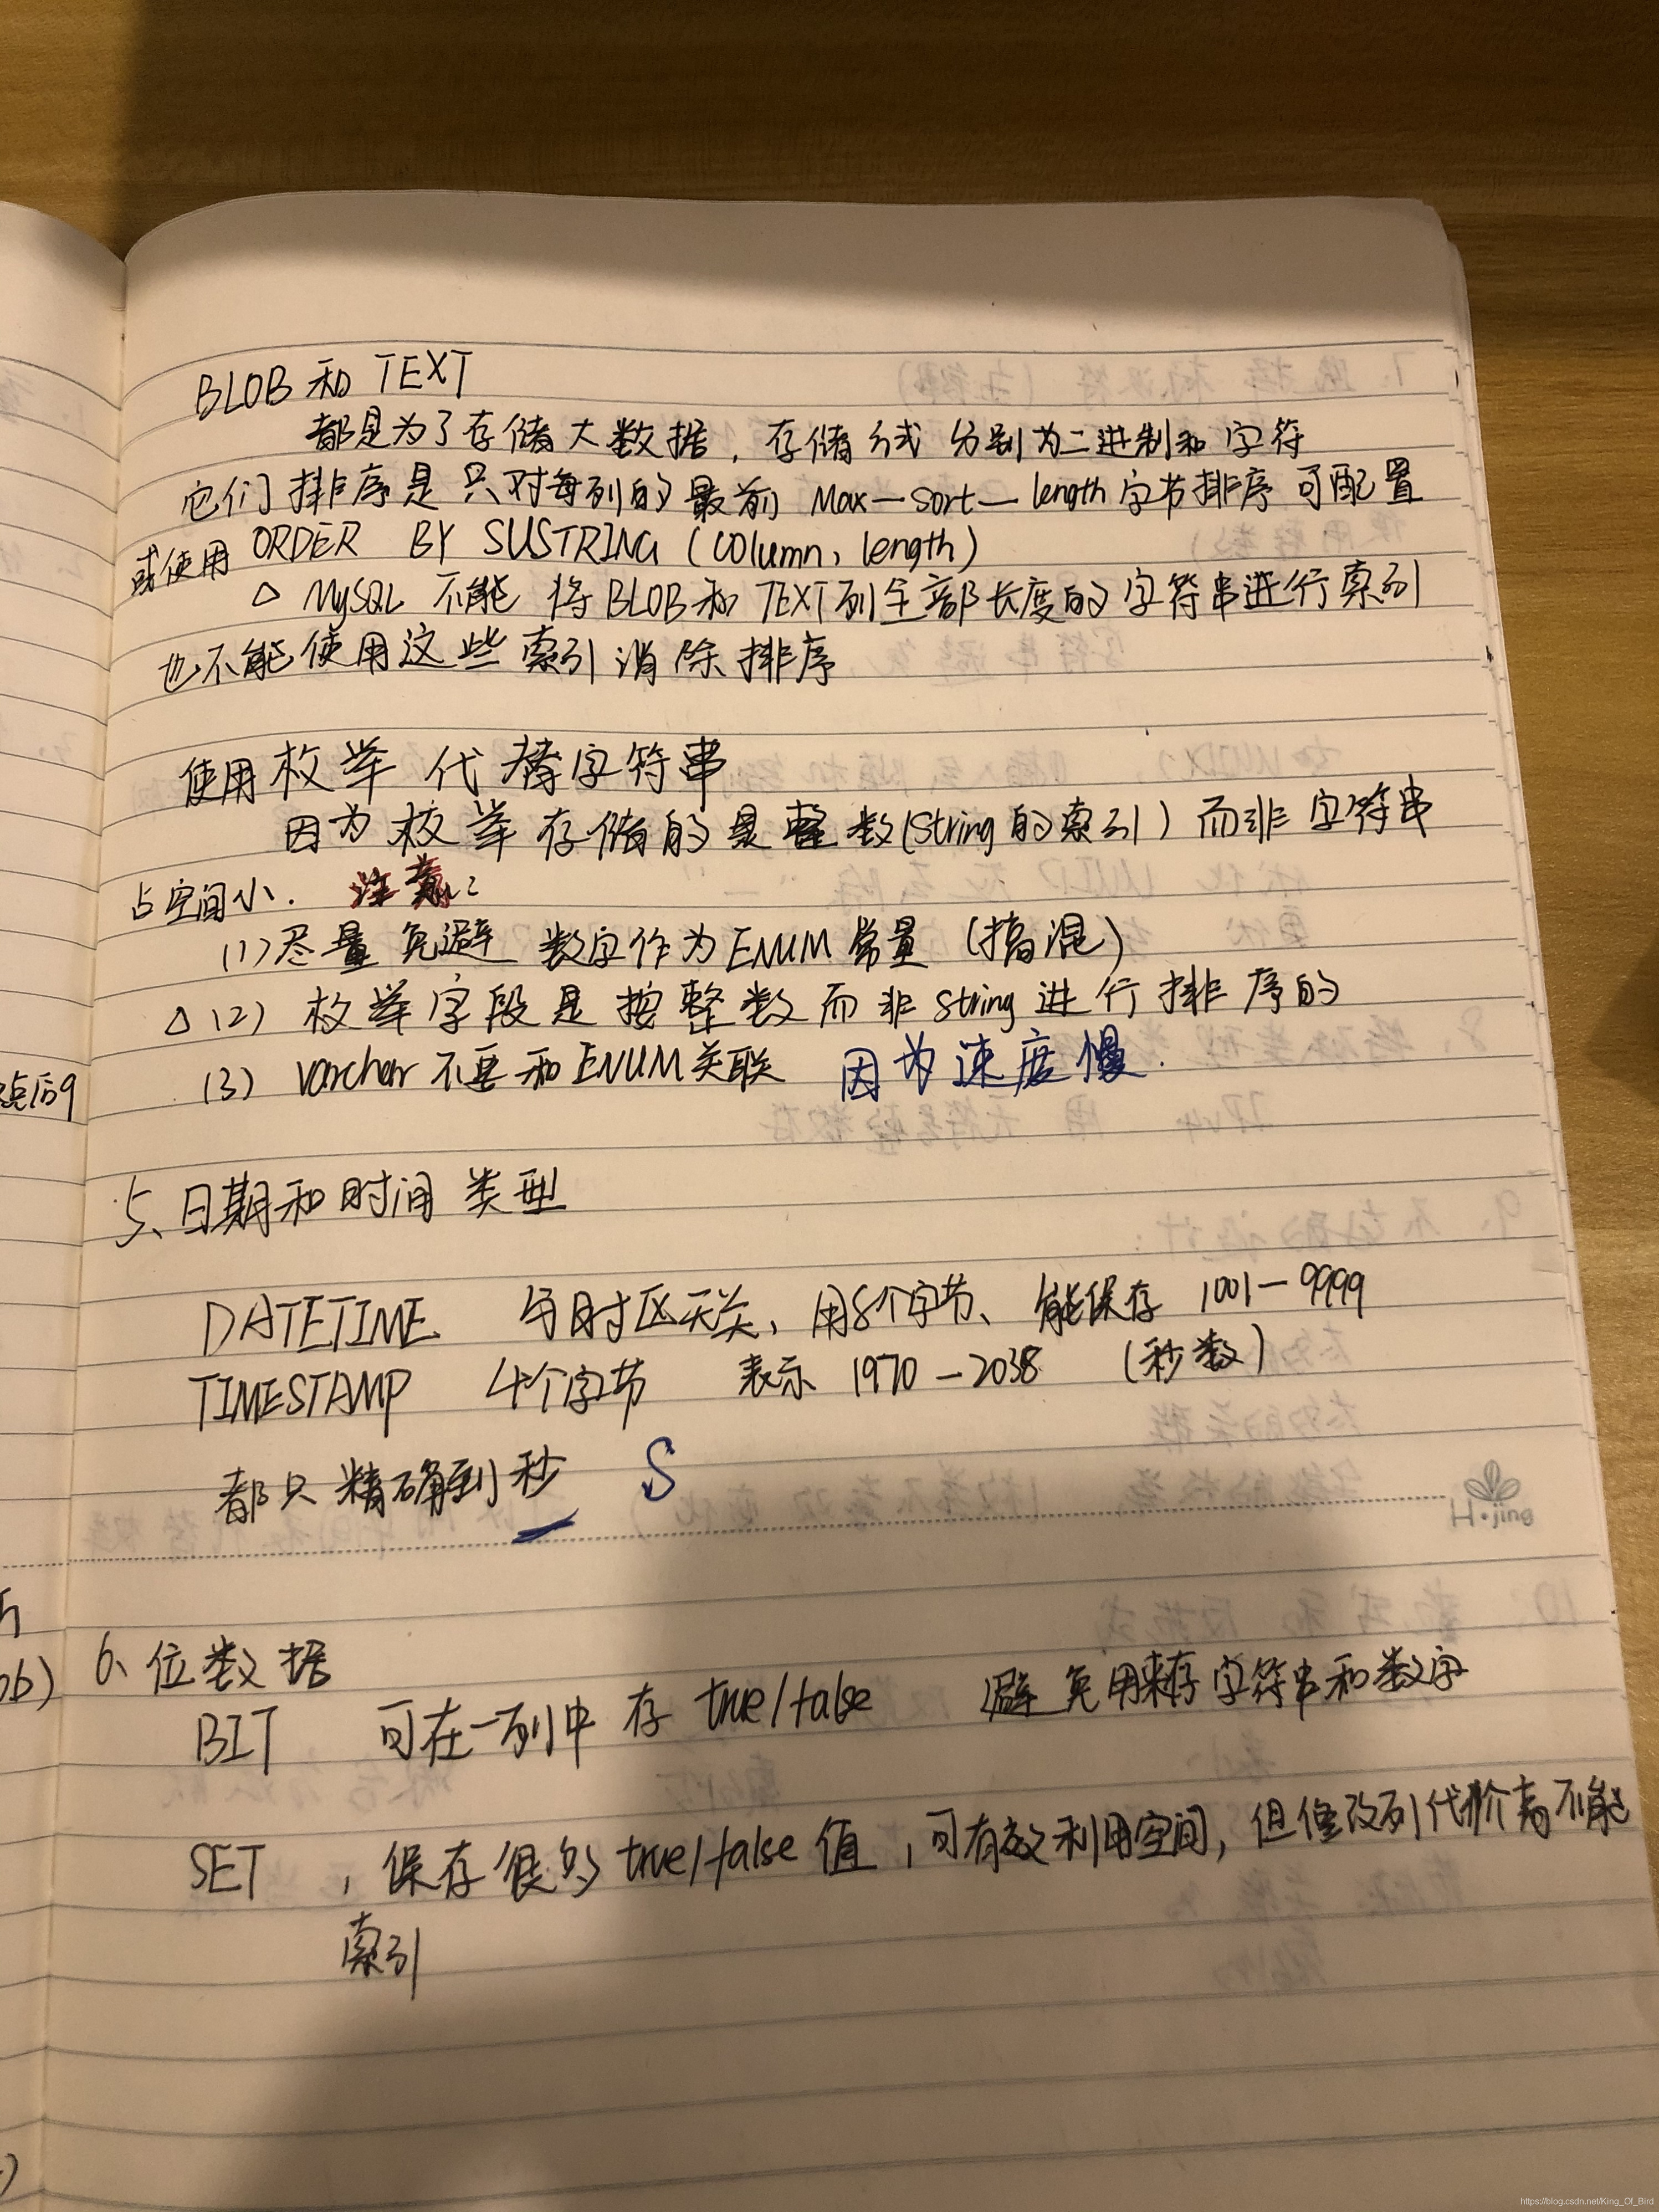 BLOB 和 TEXT
都是为了存储大数据，存储方式 分别为二进制和字符
它们排序是只对每列的最前 Max—sort—length字节排序可配置
或使用 ORDER BY SUSTRING (column, length)
△ MySQL 不能 将BLOB和 TEXT列全部长度的字符串进行索引
也不能使用这些索引消除排序
使用枚举 代替字符串
因为枚举存储的是整数(String的索引) 而非字符串
占空间小. 注意:
(1)尽量免避 数字作为ENUM常量 (搞混)
△ (2) 枚举字段是按整数而非String进行排序的
(3) varchar 不要和ENUM关联 因为速度慢.
点后9
5、日期和时间类型
DATETIME 与时区无关、用8个字节、能保存 1001—9999
TIMESTAMP 4个字节 表示 1970—2038 (秒数)
都只精确到秒 S
H·jing
6、位数据
BIT 可在一列中 存 true/false 避免用来存字符串和数字
SET , 保存很多 true/false 值，可有效利用空间，但修改列代价高不能
索引
https://blog.csdn.net/King_Of_Bird